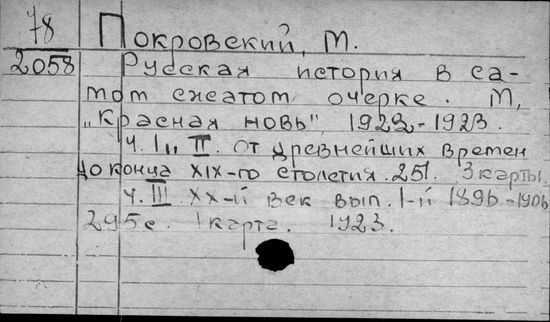 78
Покровский, М.
2058
Русская история в са-
мом сжатом очерке. М,
„Красная новь", 1922-1923.
ч. I и II. от древнейших времен
до конца XIX-го столетия. 251. 3 карты.
ч. III. XX-й век вып. 1-й 1896-1906
295 с. 1 карта. 1923.